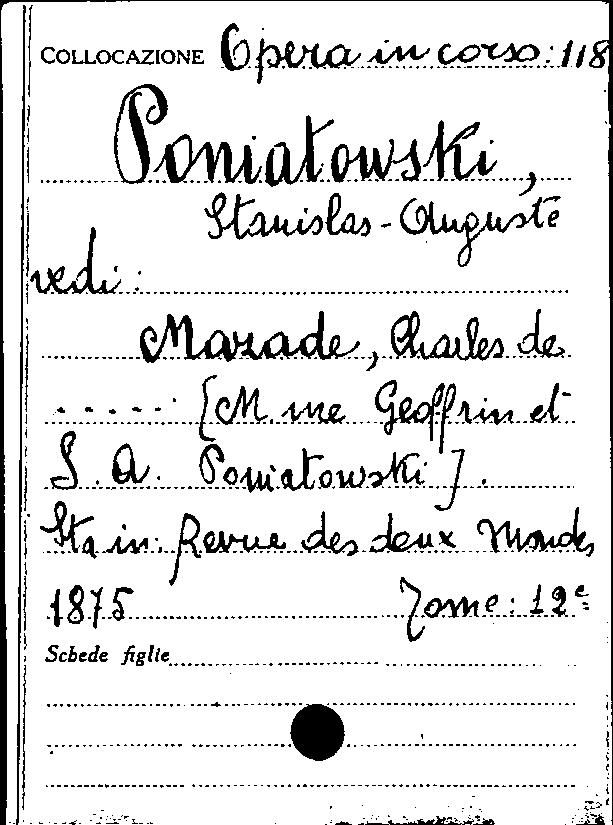 COLLOCAZIONE Opera in corso: 118
Poniatowski,
Stanislas-Auguste
vedi:
Mazade, Charles de
..... [M.me Geoffrin et
S. A. Poniatowski].
Sta in: Revue des deux Mondes
1875 Tome: 12e
Schede figlie